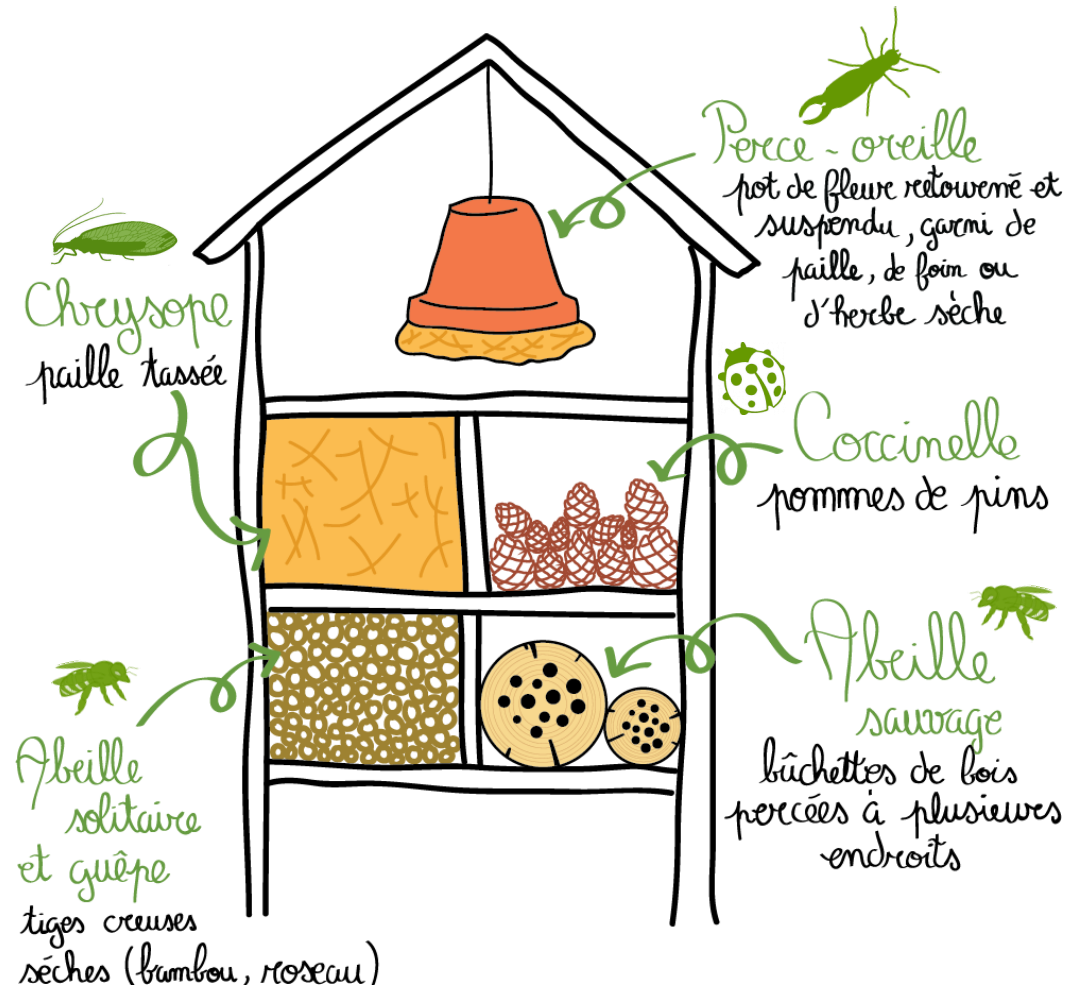 Perce-oreille
pot de fleur retourné et
suspendu, garni de
paille, de foin ou
d'herbe sèche
Chrysope
paille tassée
Coccinelle
pommes de pins
Abeille
sauvage
bûchettes de bois
percées à plusieurs
endroits
Abeille
solitaire
et guêpe
tiges creuses
séches (bambou, roseau)